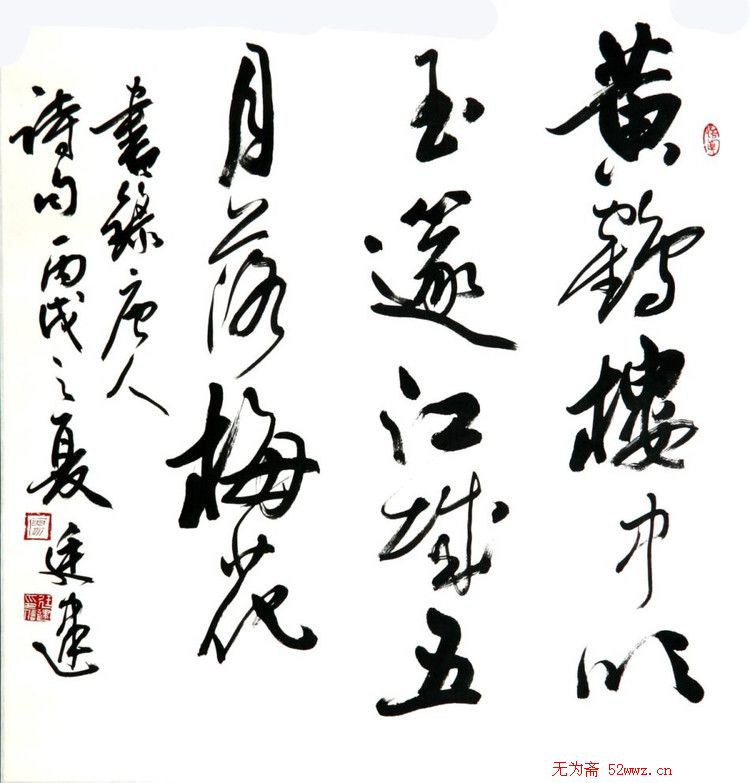 黄鶴樓中吹
玉篴江城五
月落梅花
書錄唐人
詩句丙戌之夏廷建
无为斋 52wwz.cn